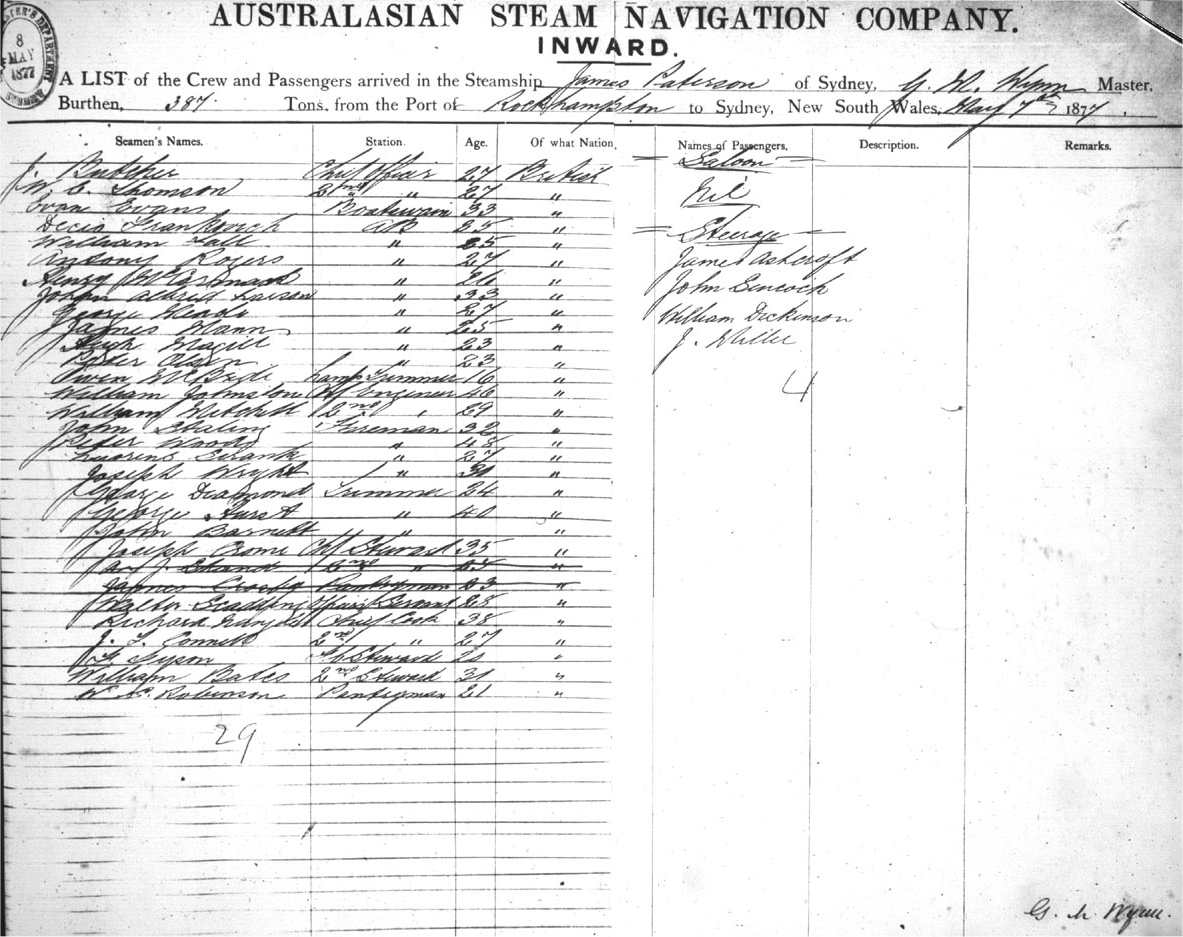 AUSTRALASIAN STEAM NAVIGATION COMPANY.
INWARD.
8
MAY
1877
A LIST of the Crew and Passengers arrived in the Steamship James Paterson of Sydney, G. M. Wynn Master,
Burthen, 387 Tons, from the Port of Rockhampton to Sydney, New South Wales, May 7th 1877.
Seamen's Names. Station. Age. Of what Nation, Names of Passengers, Description. Remarks.
J. Butcher Chief Officer 27 British
W. C. Thomson 2nd " 27 "
Evan Evans Boatswain 33 "
Decio Frankovich AB 25 "
William " 25 "
Antony Rogers " 27 "
Henry McCormack " 26 "
Alfred Larson " 33 "
George " 27 "
James Mann " 25 "
Hugh Magill " 23 "
Peter Olsen " 23 "
Owen McBride Lamp Trimmer 16 "
William Johnston Chf Engineer 46 "
William Mitchell 2nd " 29 "
John Fireman 32 "
Peter Woods " 48 "
" 27 "
Joseph Wright " "
George Diamond Trimmer 24 "
George " 40 "
John Barnett " "
Joseph Crome Chf Steward 35 "
2nd " "
James Pantryman 23 "
Walter 28 "
Richard Chief Cook 38 "
J. L. Connell 2nd " 27 "
Tyson Steward "
William Bates 2nd Steward 31 "
Robinson Pantryman 21 "
29
Saloon
Nil
Steerage
James Ashcroft
John
William Dickinson
J. Miller
4
G. M. Wynn.